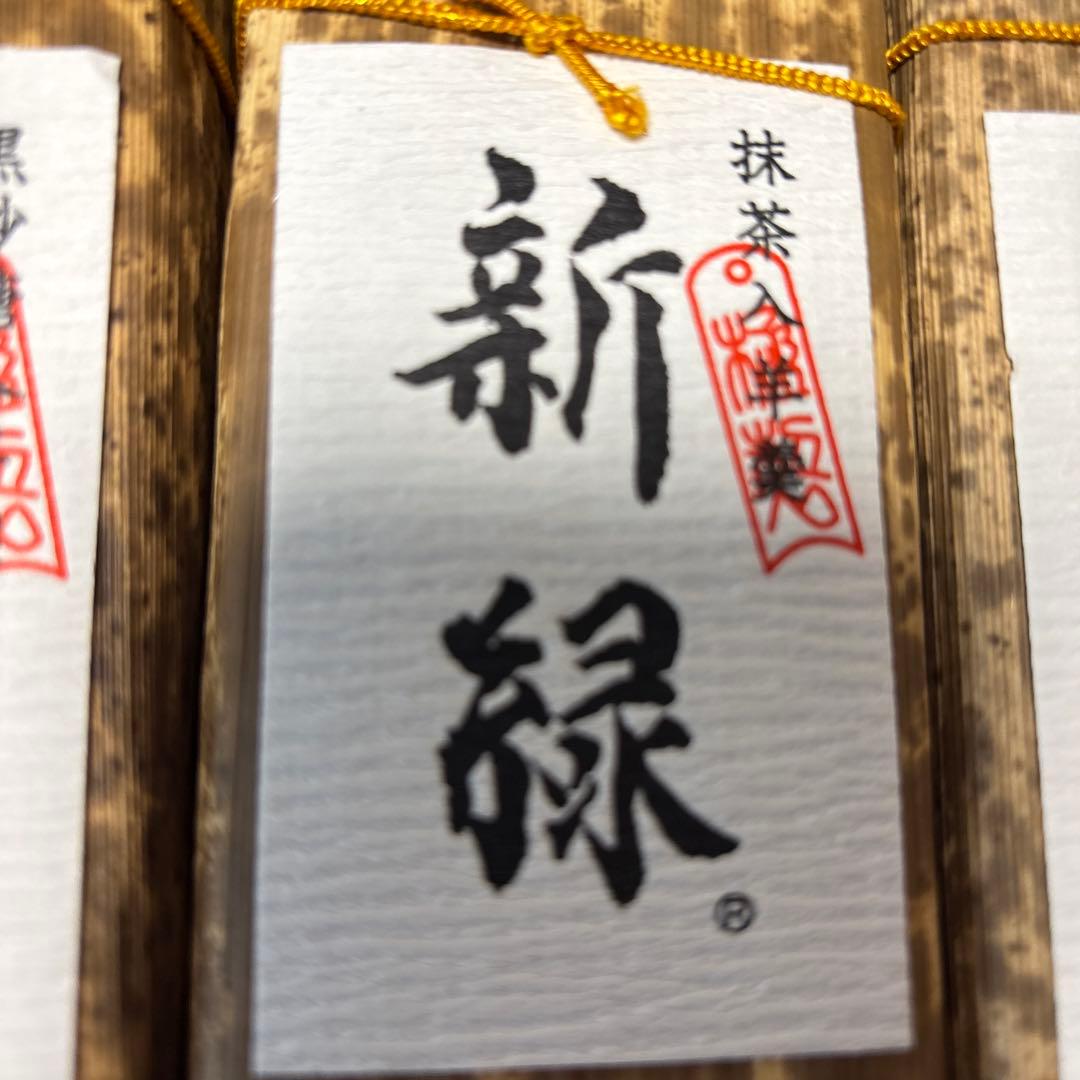 抹茶入羊羹
新緑
®
黒砂糖